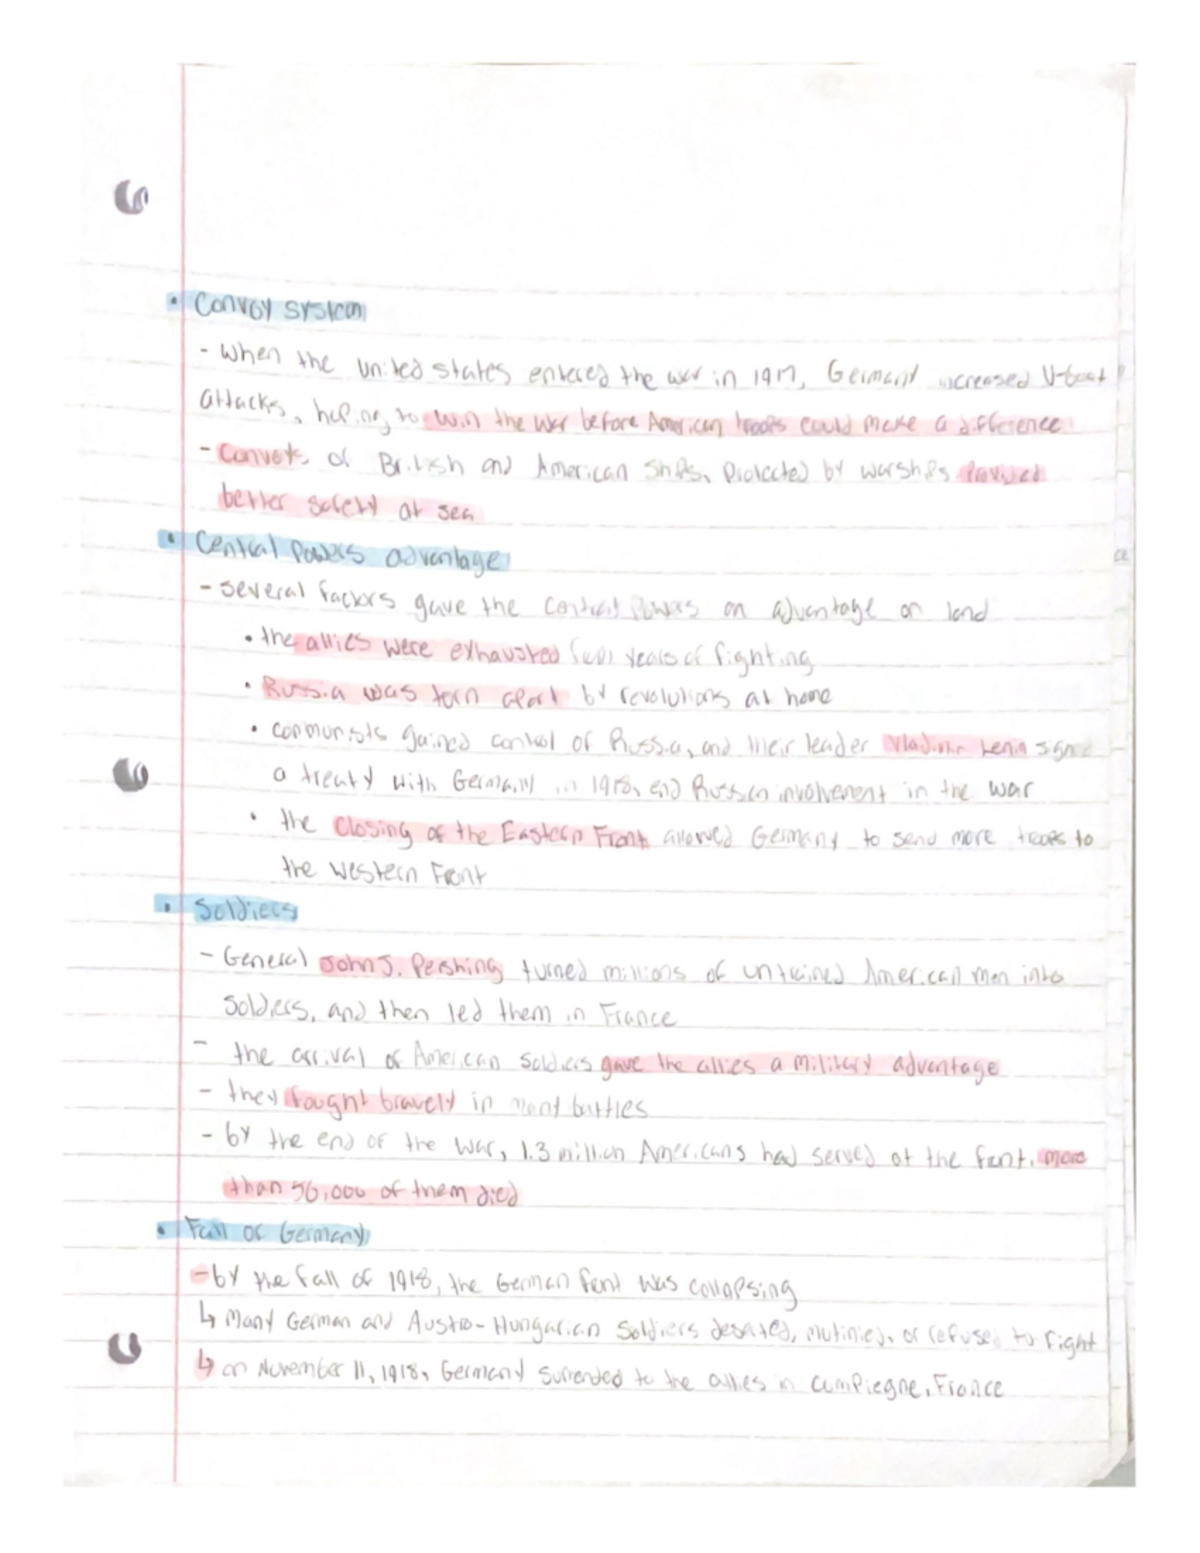 • Convoy system
- When the United States entered the war in 1917, Germany increased U-boat
attacks, hoping to win the war before American troops could make a difference
- Convoys of British and American ships, protected by warships provided
better safety at sea
• Central Powers advantage
- several factors gave the Central Powers an advantage on land
• the allies were exhausted from years of fighting
• Russia was torn apart by revolutions at home
• communists gained control of Russia, and their leader Vladimir Lenin signed
a treaty with Germany in 1918, end Russian involvement in the war
• the closing of the Eastern Front allowed Germany to send more troops to
the Western Front
• Soldiers
- General John J. Pershing turned millions of untrained American men into
soldiers, and then led them in France
- the arrival of American soldiers gave the allies a military advantage
- they fought bravely in many battles
- by the end of the war, 1.3 million Americans had served at the front, more
than 56,000 of them died
• Fall of Germany
- by the fall of 1918, the German front was collapsing
↳ Many German and Austro-Hungarian soldiers deserted, mutinied, or refused to fight
↳ on November 11, 1918, Germany surrended to the allies in Compiegne, France